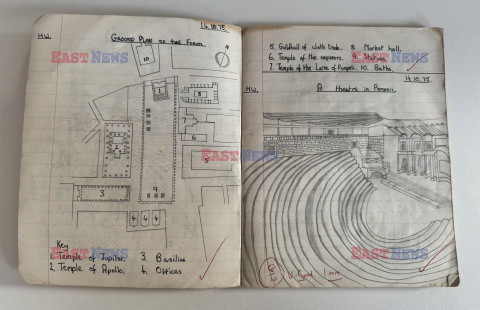 14.10.75.
H.W.
Ground Plan of the Forum.
N
10
1
8
7
6
2
5
3
9
4 4 4
Key
1. Temple of Jupiter. 3. Basilica
2. Temple of Apollo. 4. Offices
5. Guildhall of cloth trade. 8. Market hall.
6. Temple of the emperors. 9. Statues.
7. Temple of the Lares of Pompeii. 10. Baths.
14.10.75.
H.W.
A theatre in Pompeii.
Good 1 mm
EAST NEWS
EAST NEWS
EAST NEWS
EAST NEWS
EAST NEWS